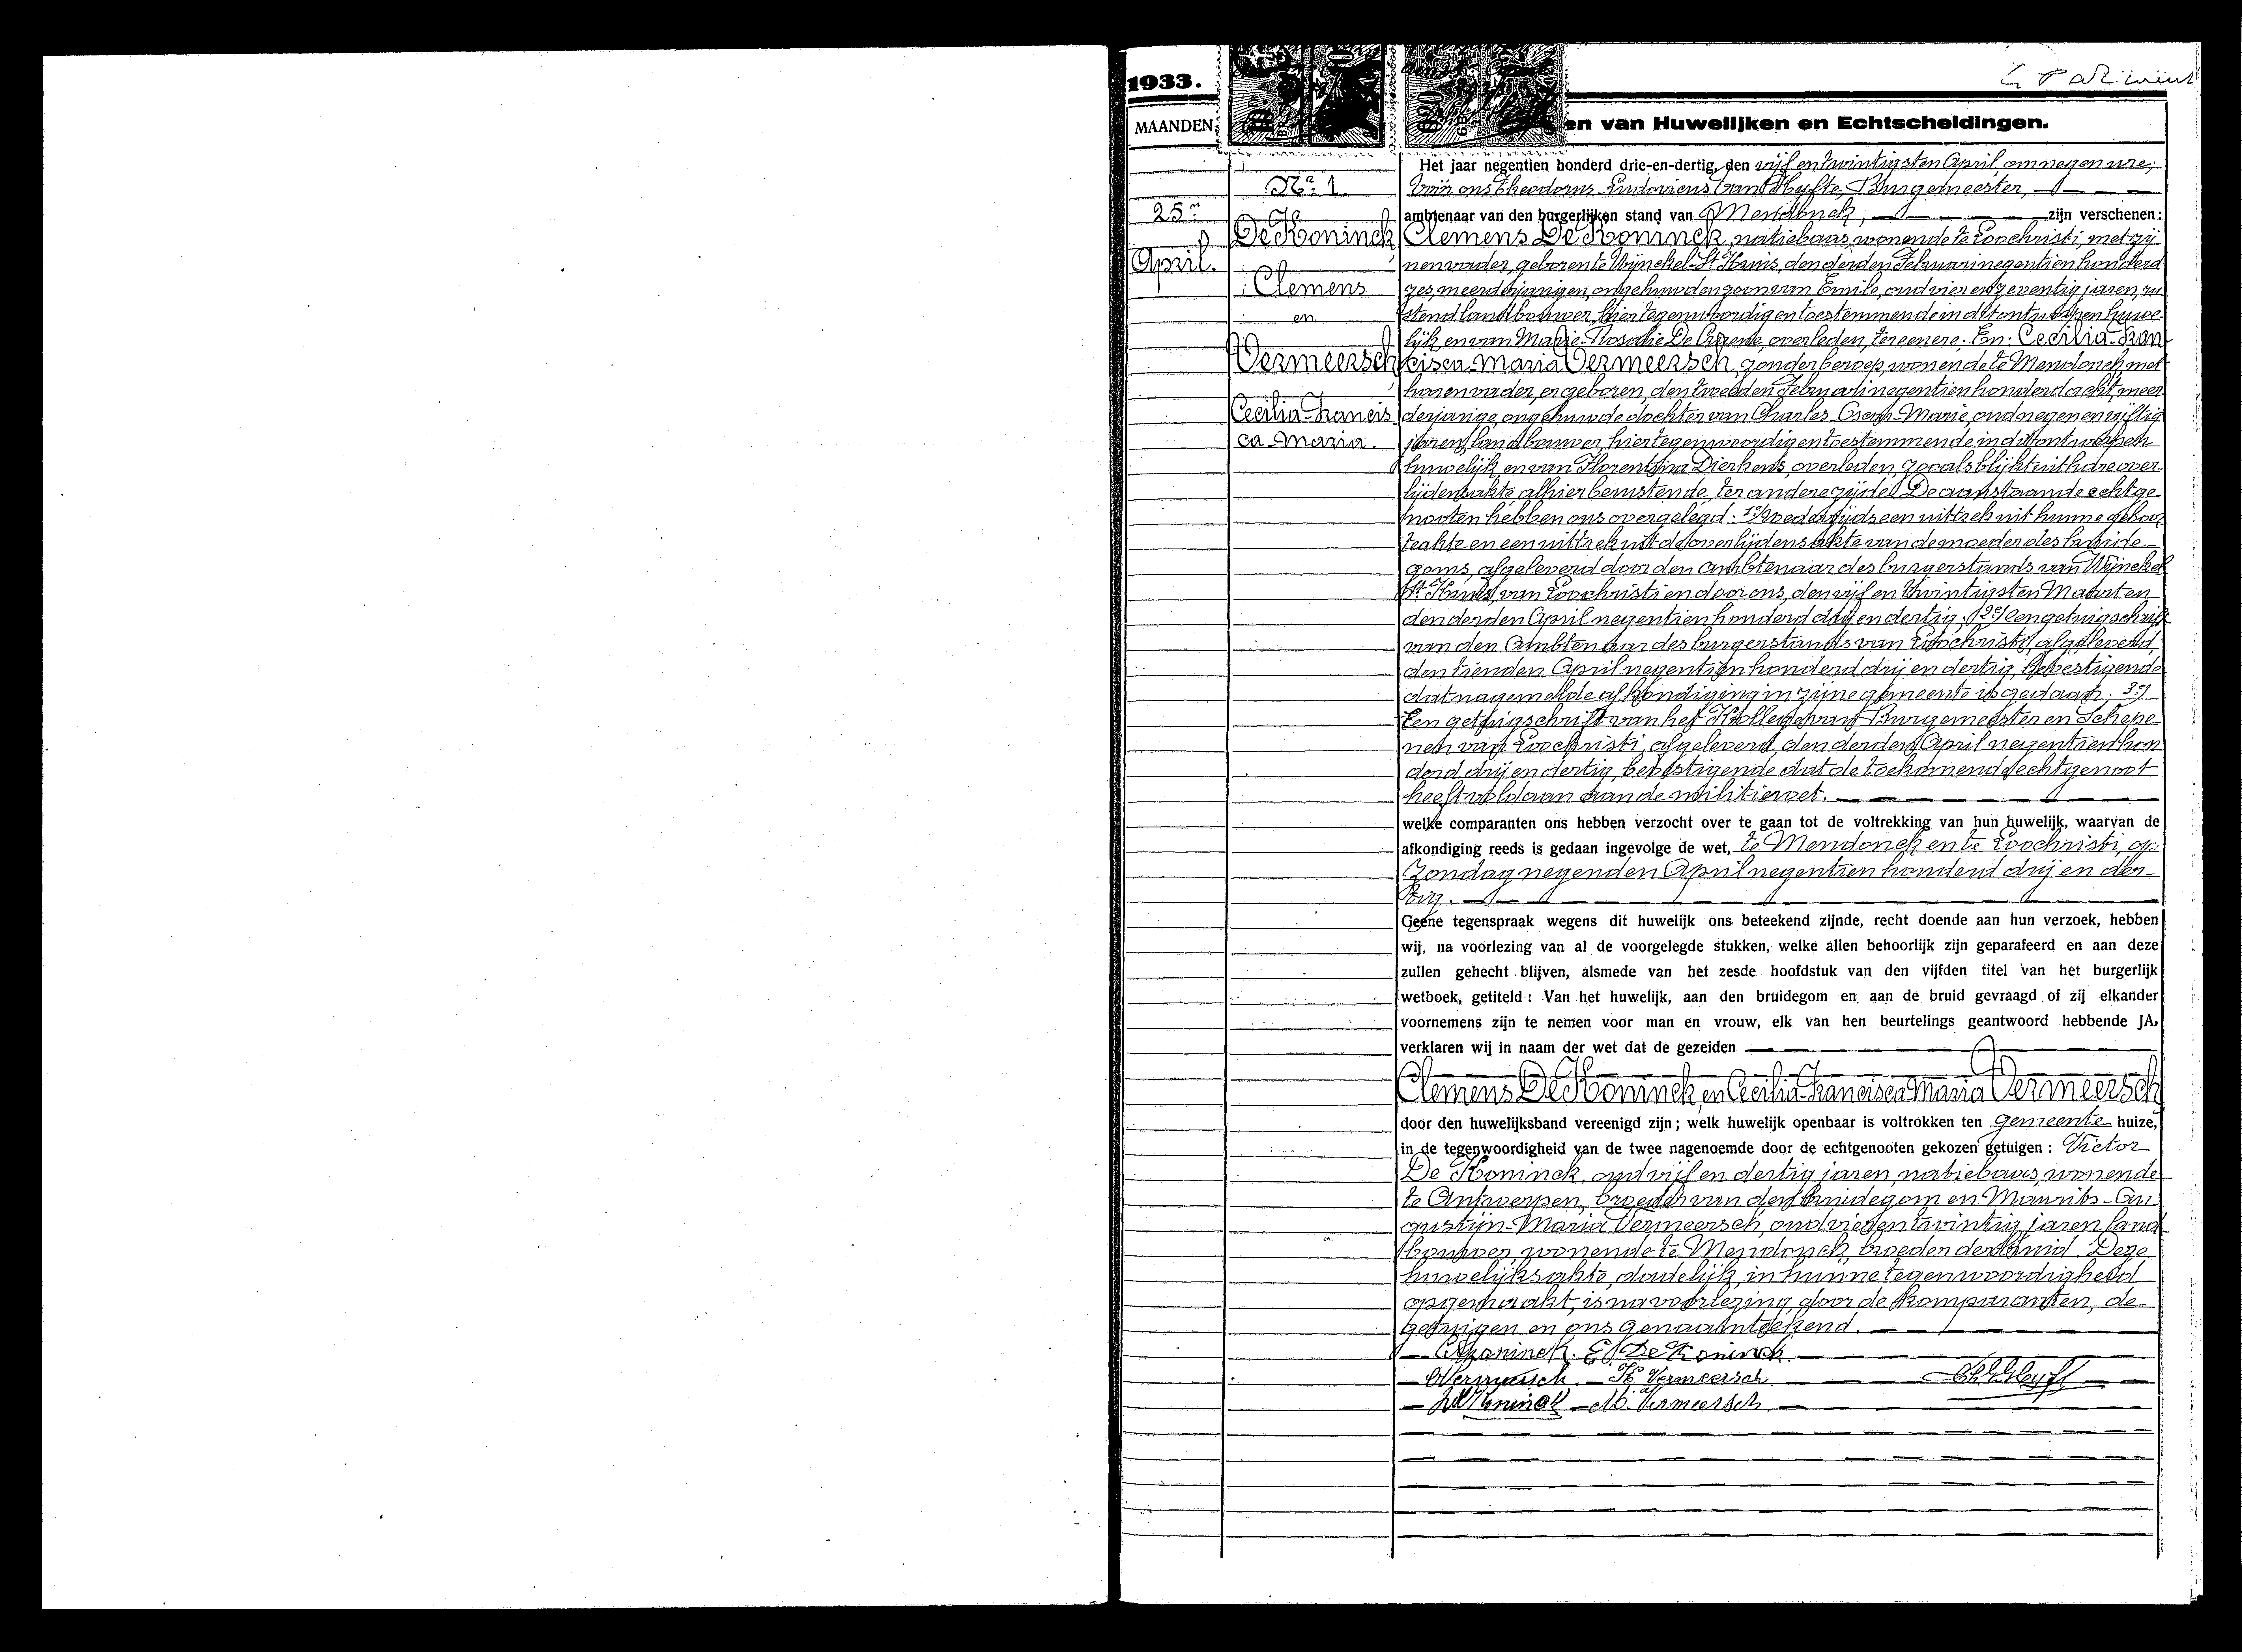 1933.
MAANDEN
en van Huwelijken en Echtscheidingen.
Nr. 1.
25n
April.
De Koninck
Clemens
en
Vermeersch
Cecilia-Francis
ca-Maria.
Het jaar negentien honderd drie-en-dertig, den vijf en twintigsten April, om negen ure,
vóór ons Theodorus-Ludovicus Van Hyfte, Burgemeester,
ambtenaar van den burgerlijken stand van Mendonck, zijn verschenen:
Clemens De Koninck, natiebaas, wonende te Loochristi, met zij
nen vader, geboren te Wynckel-St Kruis, den derden Februari negentien honderd
zes, meerderjarigen, ongehuwden zoon van Emile, oud vier en zeventig jaren, ru
stend landbouwer, hier tegenwoordig en toestemmende in dit ontworpen huwe-
lijk en van Marie-Rosalie De overleden, ter eenere. En: Cecilia-Fran
cisca-Maria Vermeersch, zonder beroep, wonende te Mendonck met
haren vader, er geboren, den tweeden Februari negentien honderd acht, meer
derjarige, ongehuwde dochter van Charles-Marie, oud negen en vijftig
jaren, landbouwer, hier tegenwoordig en toestemmende in dit ontworpen
huwelijk en van Florentina Dierkens, overleden, zooals blijkt uit hare over-
lijdensakte, alhier berustende, ter andere zijde. De aanstaande echtge-
nooten hebben ons overgelegd: 1e/ Wederzijds een uittrek uit hunne geboor
teakte en een uittrek uit de overlijdensakte van de moeder des bruide-
goms, afgeleverd door den ambtenaar des burgerstands van Wynckel
St. Kruis, van Loochristi en door ons, den vijf en twintigsten Maart en
den derden April negentien honderd drij en dertig. 2e/ Een getuigschrift
van den Ambtenaar des burgerstands van Loochristi, afgeleverd
den tienden April negentien honderd drij en dertig, bevestigende
dat nagemelde afkondiging in zijne gemeente is gedaan. 3e/
Een getuigschrift van het Kollege van Burgemeester en Schepe-
nen van Loochristi, afgeleverd, den derden April negentien hon
derd drij en dertig, bevestigende dat de toekomende echtgenoot
heeft voldaan aan de militiewet.
welke comparanten ons hebben verzocht over te gaan tot de voltrekking van hun huwelijk, waarvan de
afkondiging reeds is gedaan ingevolge de wet, te Mendonck en te Loochristi, op
Zondag negenden April negentien honderd drij en der-
tig.
Geene tegenspraak wegens dit huwelijk ons beteekend zijnde, recht doende aan hun verzoek, hebben
wij, na voorlezing van al de voorgelegde stukken, welke allen behoorlijk zijn geparafeerd en aan deze
zullen gehecht blijven, alsmede van het zesde hoofdstuk van den vijfden titel van het burgerlijk
wetboek, getiteld: Van het huwelijk, aan den bruidegom en aan de bruid gevraagd of zij elkander
voornemens zijn te nemen voor man en vrouw, elk van hen beurtelings geantwoord hebbende JA,
verklaren wij in naam der wet dat de gezeiden
Clemens De Koninck en Cecilia-Francisca-Maria Vermeersch
door den huwelijksband vereenigd zijn; welk huwelijk openbaar is voltrokken ten gemeente huize,
in de tegenwoordigheid van de twee nagenoemde door de echtgenooten gekozen getuigen: Victor
De Koninck, oud vijf en dertig jaren, natiebaas, wonende
te Antwerpen, broeder van den bruidegom en Maurits-Au
gustijn-Maria Vermeersch, oud vier en twintig jaren, land
bouwer, wonende te Mendonck, broeder der bruid. Deze
huwelijksakte, dadelijk in hunne tegenwoordigheid
opgemaakt, is na voorlezing door de komparanten, de
getuigen en ons genaamteekend.
C. Dekoninck. E. De Koninck
C. Vermeersch. K. Vermeersch
De Koninck M. Vermeersch